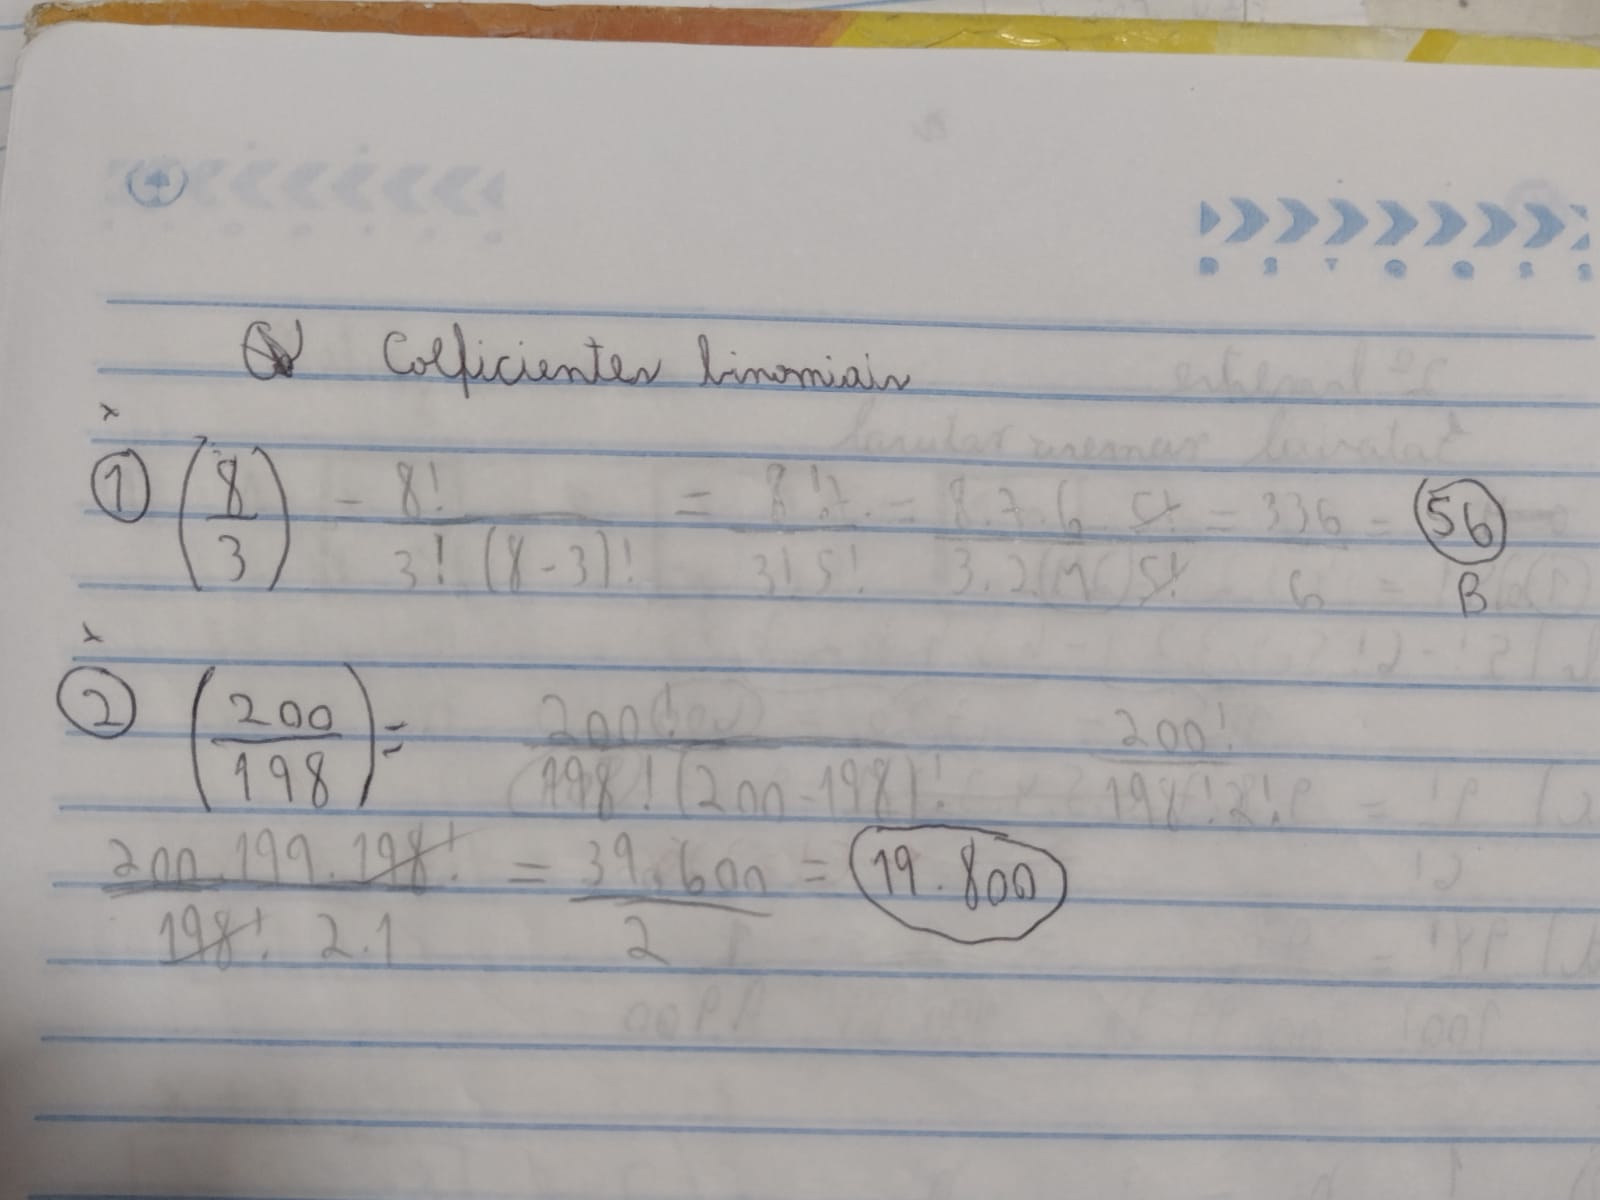 Coeficientes binomiais
① (8/3) = 8!/3!(8-3)! = 8!/3!5! = 8.7.6 5!/3.2 5! = 336/6 = 56
B
② (200/198) = 200!/198!(200-198)! 200!/198!2!
200.199.198!/198! 2.1 = 39.600/2 = 19.800